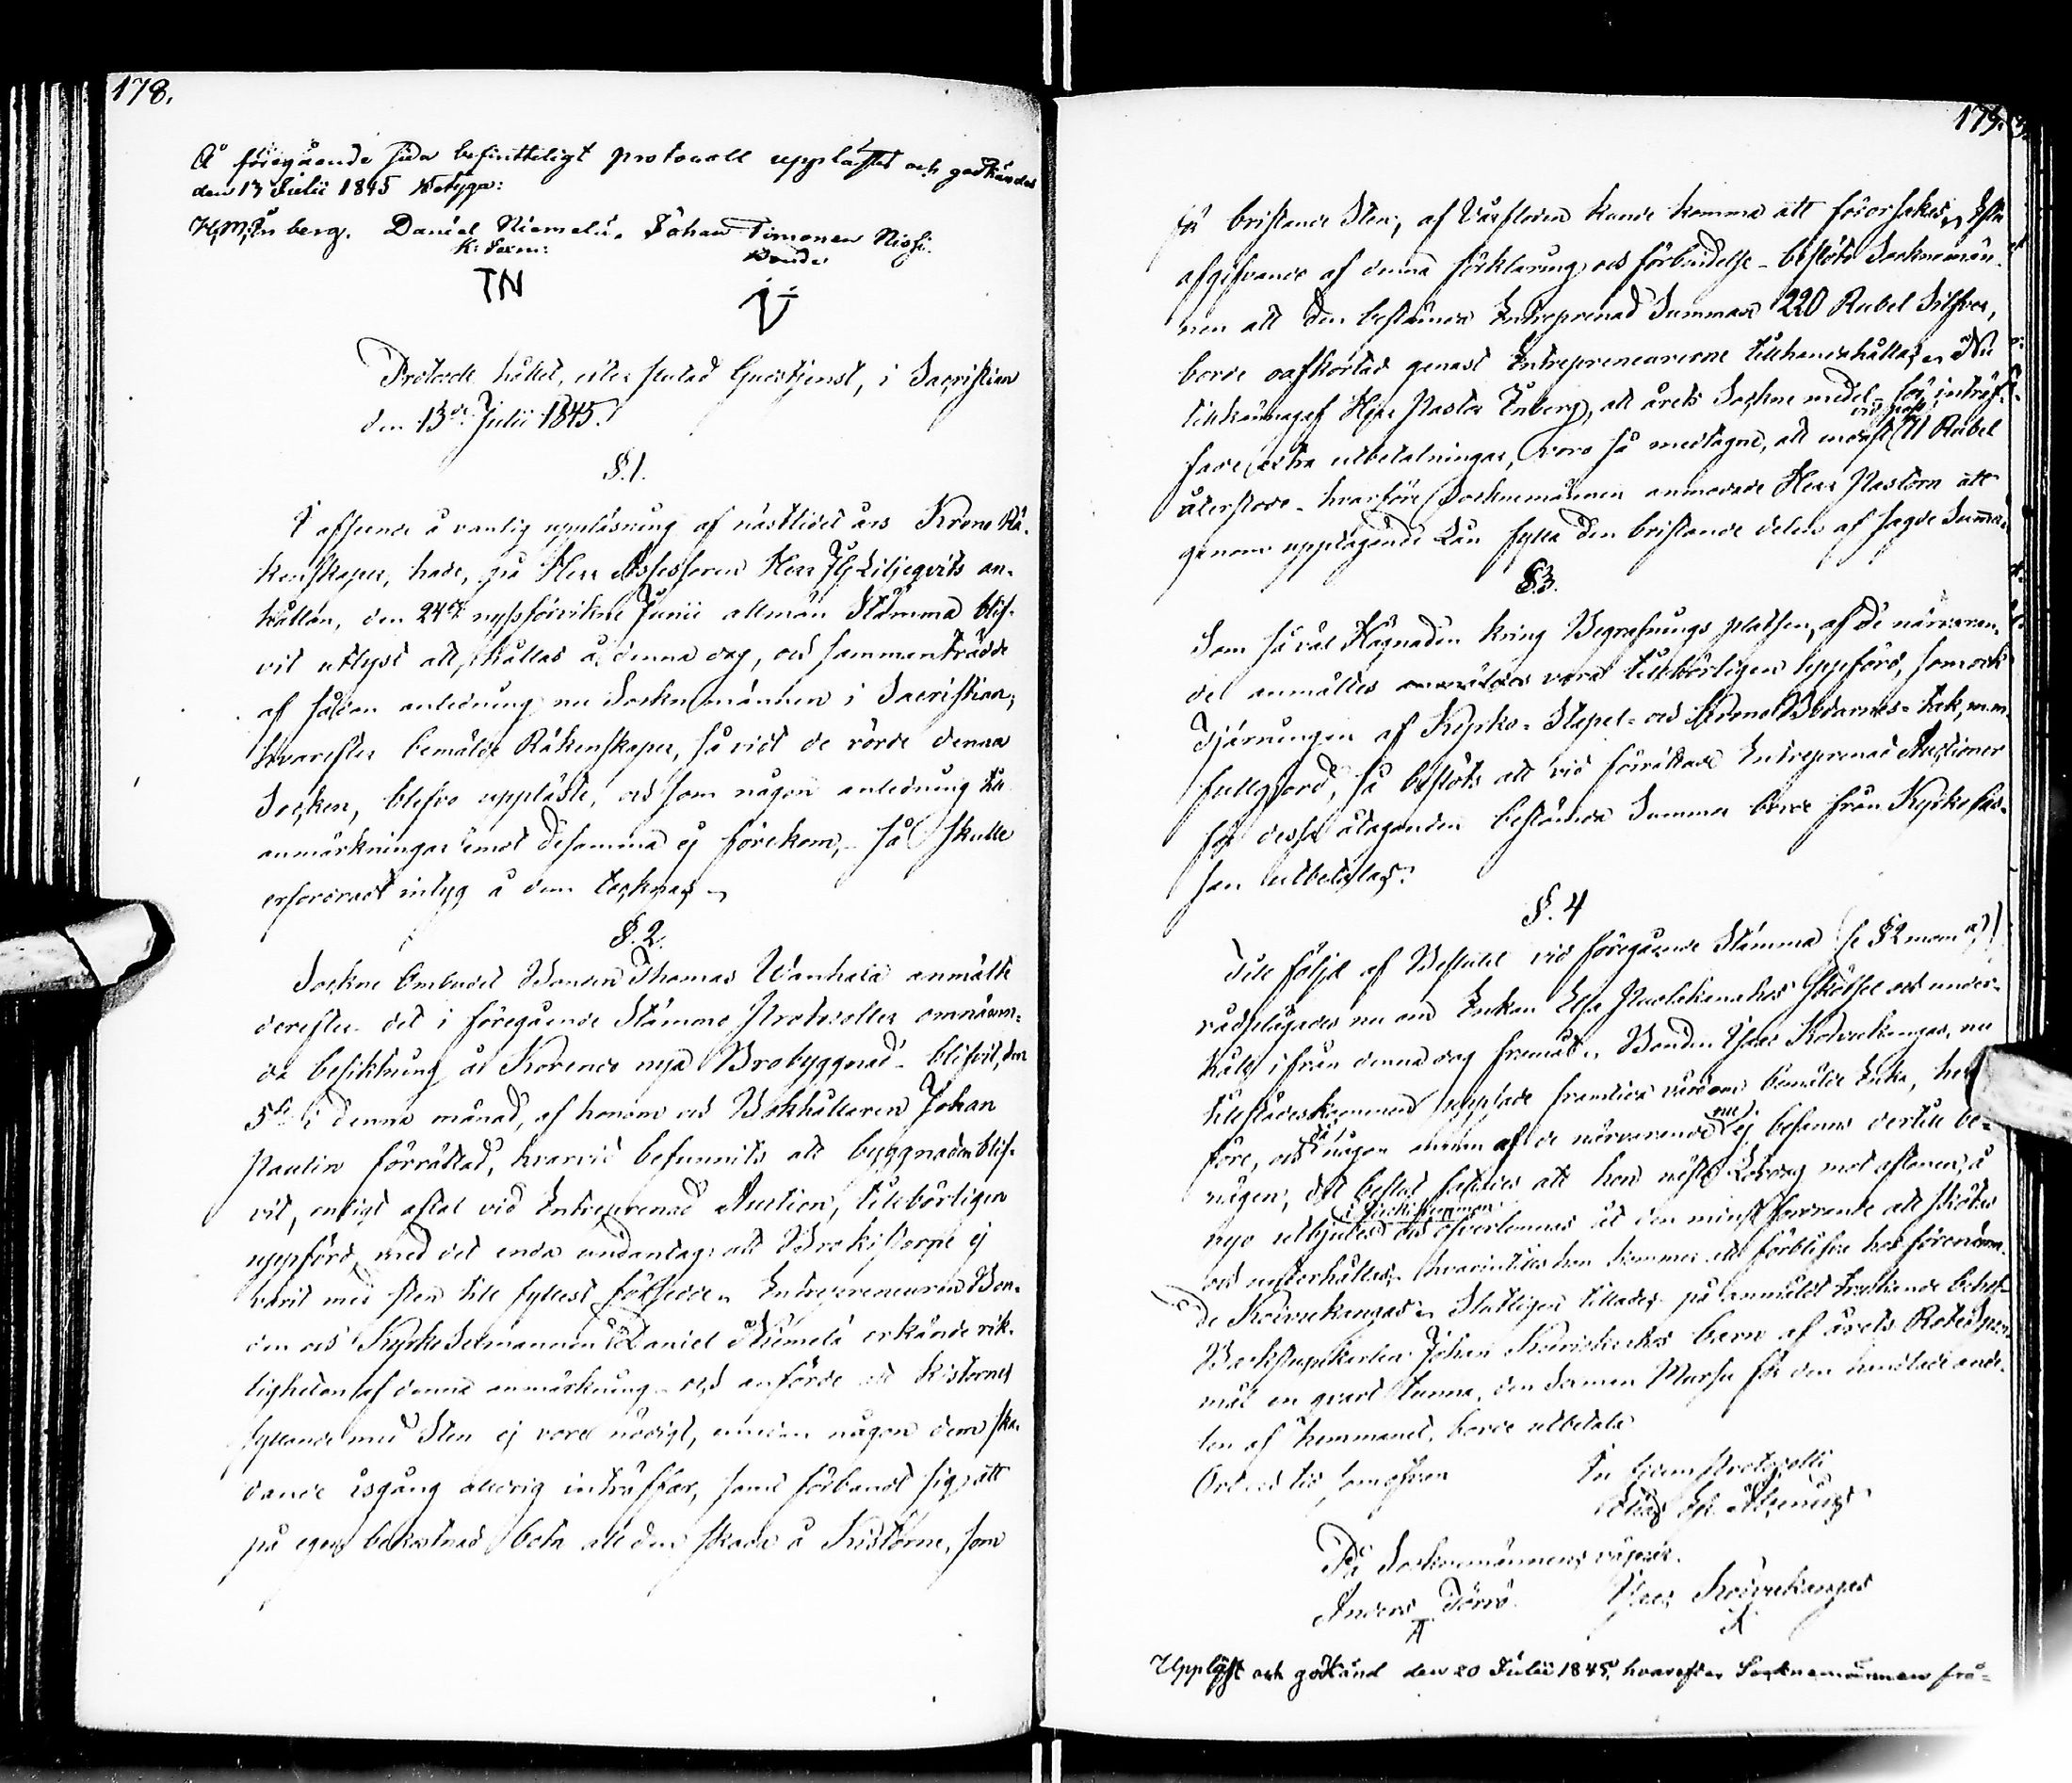 178.
Å föregående sida befintteligt protocoll uppläst och godkändes
den 13 Julii 1845 Betyga:
H.M. Enberg. Daniel Niemelä. Johan Timonen Nisse.
K: Sexm: Bonde
TN
Protocoll hållet, efter slutad Gudstjenst, i Sacristian
den 13de Julii 1845.
§.1.
I afseende å vanlig uppläsning af nästlidet års Krono Rä-
kenskaper, hade, på Herr Assessoren Herr Liljeqvists an-
hållan, den 24de nyssförvikne Junii allmän Stämma blif-
vit utlyst att hållas å denna dag, och sammanträdde
af sådan anledning nu Socknemännen i Sacristian,
hvarefter bemälde Räkenskaper, så vidt de rörde denna
Socken, blefvo uppläste, och som någon anledning till
anmärkningar emot desamma ej förekom, så skulle
erforderligt intyg å dem tecknas.
§.2.
Sockne Ombudet Bonden Thomas Wanhala anmälte
derefter det i föregående Stämmo Protocoller omnämn-
da besiktning å Korenes nya Brobyggnad blifvit, den
5te i denna månad, af honom och Bokhållaren Johan
Paulin förrättad, hvarvid befunnits att byggnaden blif-
vit, enligt aftal vid Entreprenad Auction, tillbörligen
uppförd, med det enda undantag: att Brokistorne ej
varit med sten till fyllest försedde. Entrepreneuren Bon-
den och Kyrko Sexmannen Daniel Niemelä erkände rik-
tigheten af denna anmärkning och anförde att Kistornes
fyllande med Sten ej vore nödigt, emedan någon dem ska-
dande isgång aldrig inträffar, samt förbandt sig att
på egen bekostnad bota all den skada å Kistorne, som
179.
bristande Sten, af Vårfloden kunde komma att förorsakas. Efter
afgifvande af denna förklaring och förbindelse beslöto Socknemän-
nen att den bestämda Entreprenad Summan 220 Rubel Silfver,
borde oafkortad genast Entrepreneurerne tillhandahållas. Nu
tillkännagaf Herr Pastor Enberg, att årets Sockne medel för inträf-
vid pass
fade extra utbetalningar, voro så medtagne, att endast 11 Rubel
återstode hvarföre Socknemännen anmodade Herr Pastorn att
genom upptagande Lån fylla den bristande delen af sagde Summa.
§3.
Som så väl Hägnaden kring Begrafnings platsen, af de närvaran-
de anmältes vara tillbörligen uppförd, som ock
Tjärningen af Kyrko- Stapel- och Krono Bodarnes tak, m.m.
fullgjord, så beslöts att vid förrättade Entreprenad Auctioner
för dessa åtaganden bestämda Summor borde från Kyrko Cas-
san utbetalas.
§.4
Till följd af Beslutet vid föregående Stämma (se §2 mom a)
rådplägades nu om Enkan Elsa skötsel och under-
håll ifrån denna dag framåt. Bonden Koivukangas, nu
tillstädeskommen uppsade framtida vården om bemälde Enka,
före, och då någon annan af de närvarande nu ej befanns dertill be-
nägen, det beslut fattades att hon nästa Lördag mot aftonen, å
i Kyrkostämman
nyo utbjudes och öfverlemnas åt den minst fordrande att skötas
och underhållas, hvarintills hon kommer att förblifva hos förenämn-
de Koivukangas. Slutligen tillades på anmäldt trängande behof
Backstugukarlen Johan barn af årets Rotespan-
mål en qvart tunna, den Marsu för den andelen
ten af hemmanet borde utbetala.
Ort och tid som ofvan In fidem Protocolli
På Socknemännens vägnar.
Anders Törrö. Koivukangas
Uppläst och godkänd den 20 Julii 1845, hvarefter Socknemännen frå-